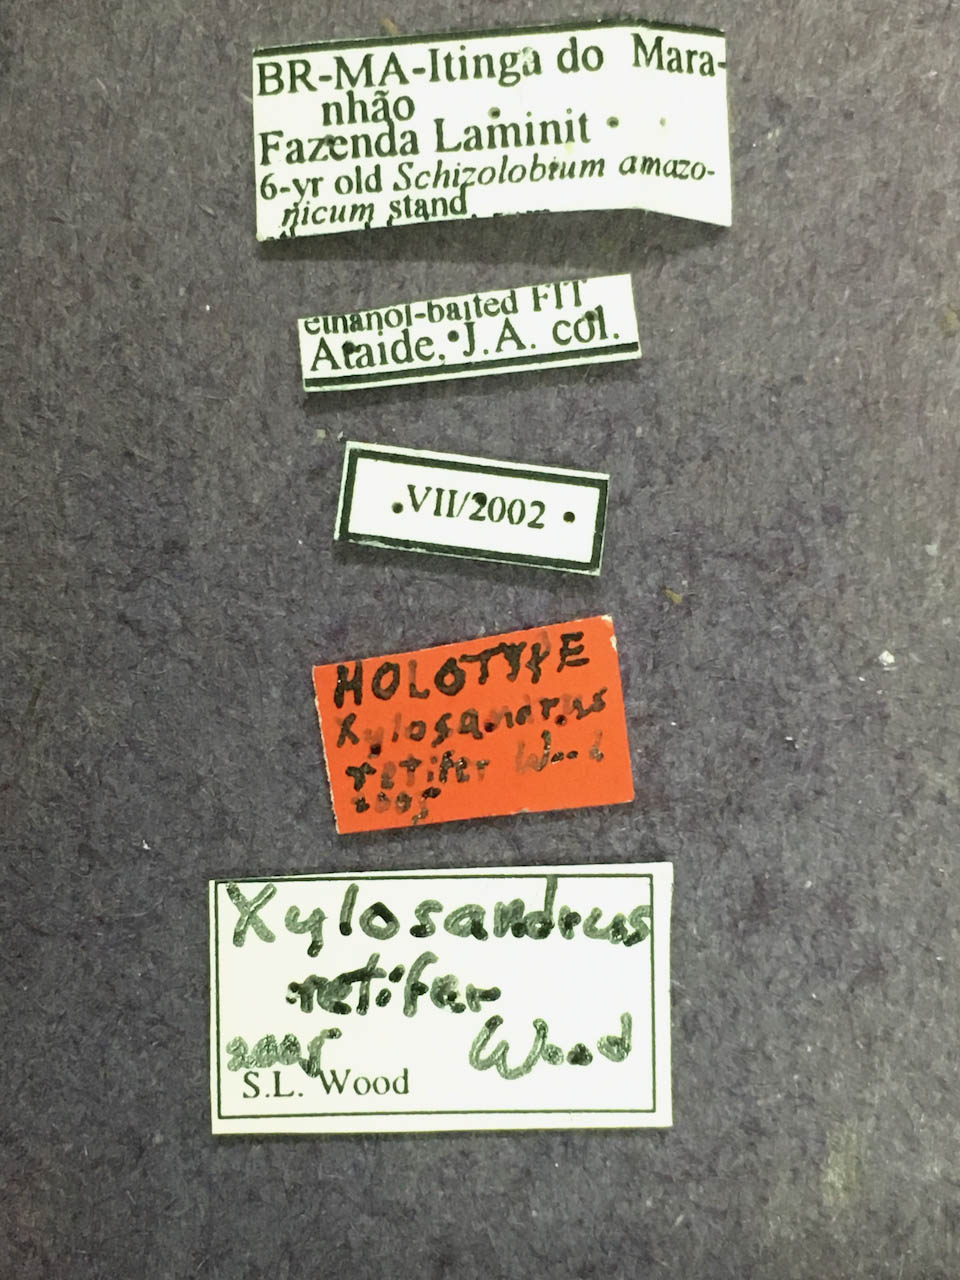 BR-MA-Itinga do Mara-
nhão
Fazenda Laminit
6-yr old Schizolobium amazo-
nicum stand
ethanol-baited FIT
Ataide, J.A. col.
VII/2002
HOLOTYPE
Xylosandrus
retifer Wood
2005
Xylosandrus
retifer
2005 Wood
S.L. Wood